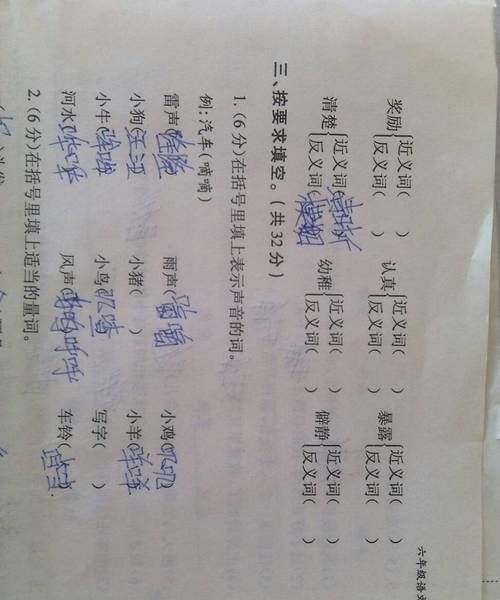 六年级语文
奖励{近义词( ) 反义词( ) 认真{近义词( ) 反义词( ) 暴露{近义词( ) 反义词( )
清楚{近义词(清晰) 反义词(模糊) 幼稚{近义词( ) 反义词( ) 僻静{近义词( ) 反义词( )
三、按要求填空。(共32分)
1.(6分)在括号里填上表示声音的词。
例:汽车(嘀嘀)
雷声(隆隆) 雨声( ) 小鸡(叽叽)
小狗(汪汪) 小猪( ) 小羊(咩咩)
小牛(哞哞) 小鸟( ) 写字( )
河水(哗哗) 风声( ) 车铃( )
2.(6分)在括号里填上适当的量词。